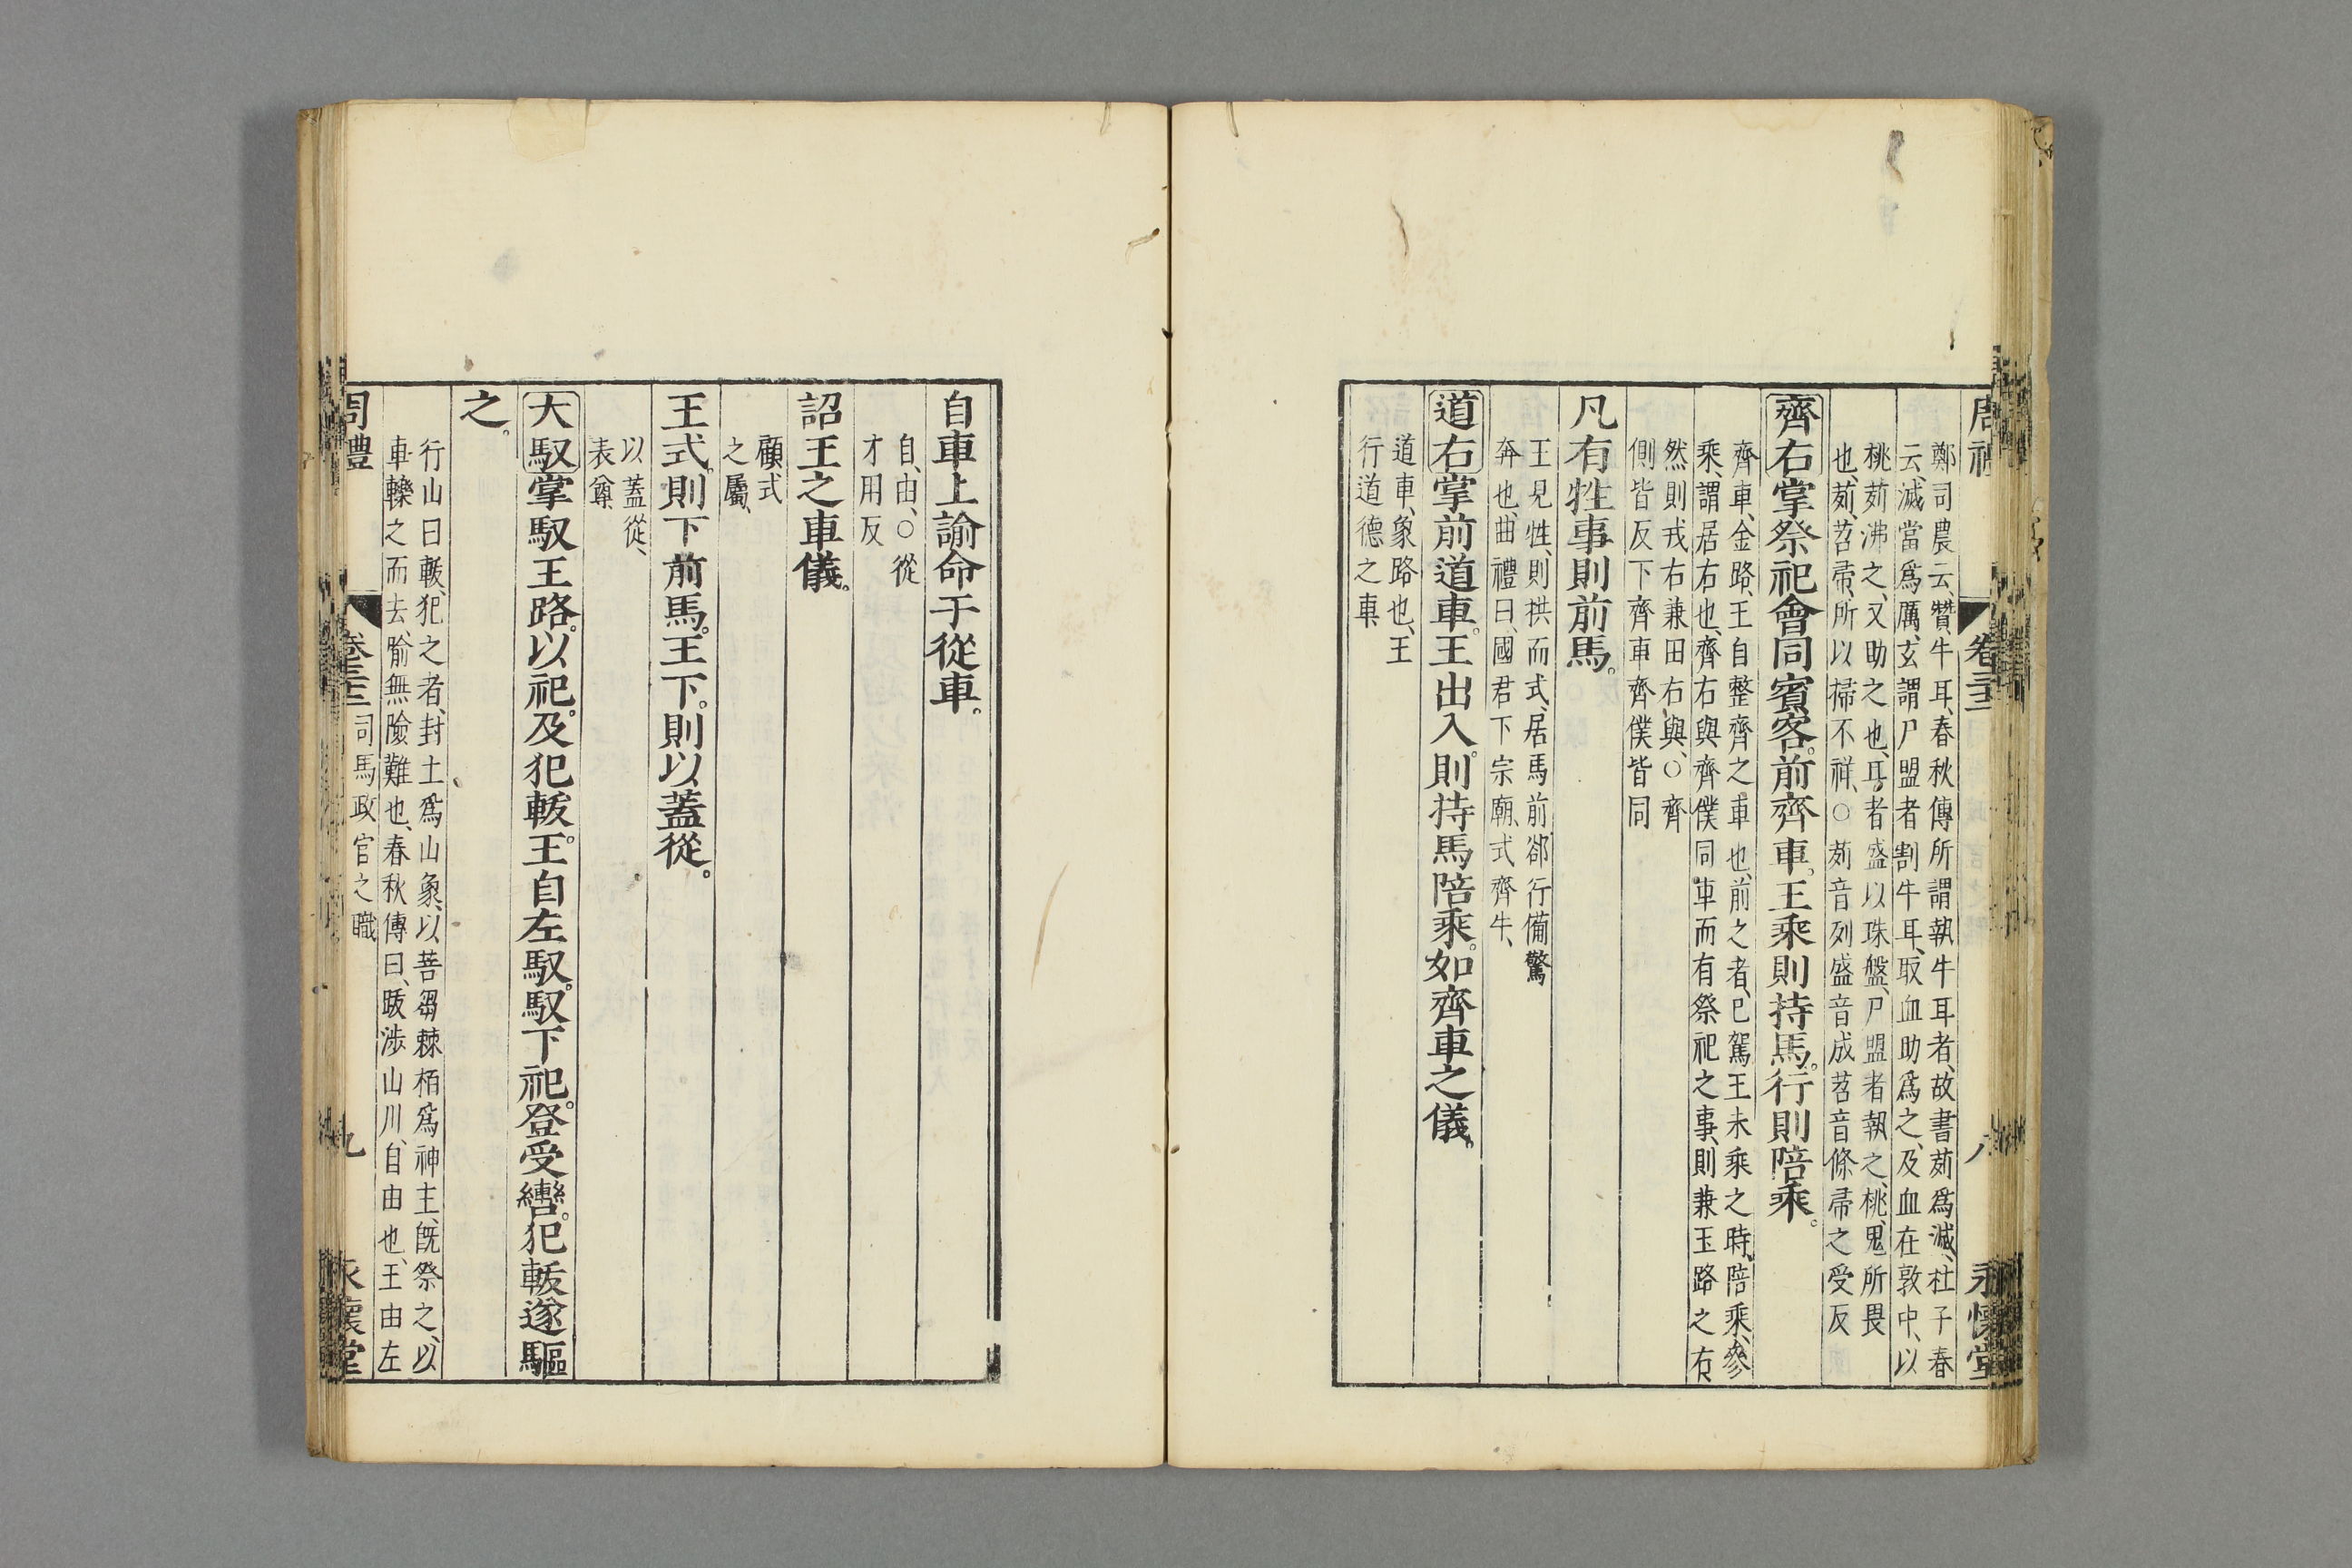 周禮
卷三十二
八
永懷堂
鄭司農云、贊牛耳、春秋傳所謂執牛耳者、故書茢爲滅、杜子春
云、滅當爲厲、玄謂尸盟者割牛耳、取血助爲之、及血在敦中、以
桃茢沸之、又助之也、耳者盛以珠盤、尸盟者執之、桃、鬼所畏
也、茢、苕帚、所以掃不祥、○茢音列盛音成苕音條帚之受反
齊右掌祭祀會同賓客。前齊車。王乘則持馬。行則陪乘。
齊車、金路、王自整齊之車也、前之者、已駕王未乘之時、陪乘、參
乘、謂居右也、齊右與齊僕同車而有祭祀之事、則兼玉路之右、
然則戎右兼田右與、○齊
側皆反下齊車齊僕皆同
凡有牲事則前馬。
王見牲、則拱而式、居馬前卻行備驚
奔也、曲禮曰、國君下宗廟、式齊牛、
道右掌前道車。王出入。則持馬陪乘。如齊車之儀。
道車、象路也、王
行道德之車
自車上諭命于從車。
自、由、○從
才用反
詔王之車儀。
顧式
之屬、
王式。則下前馬。王下。則以蓋從。
以蓋從、
表尊
大馭掌馭王路。以祀。及犯軷。王自左馭。馭下祀。登受轡。犯軷遂驅
之。
行山曰軷、犯之者、封土爲山象、以菩芻棘栢爲神主、既祭之、以
車轢之而去、喻無險難也、春秋傳曰、跋涉山川、自由也、王由左
周禮
卷三十二
司馬政官之職
九
永懷堂